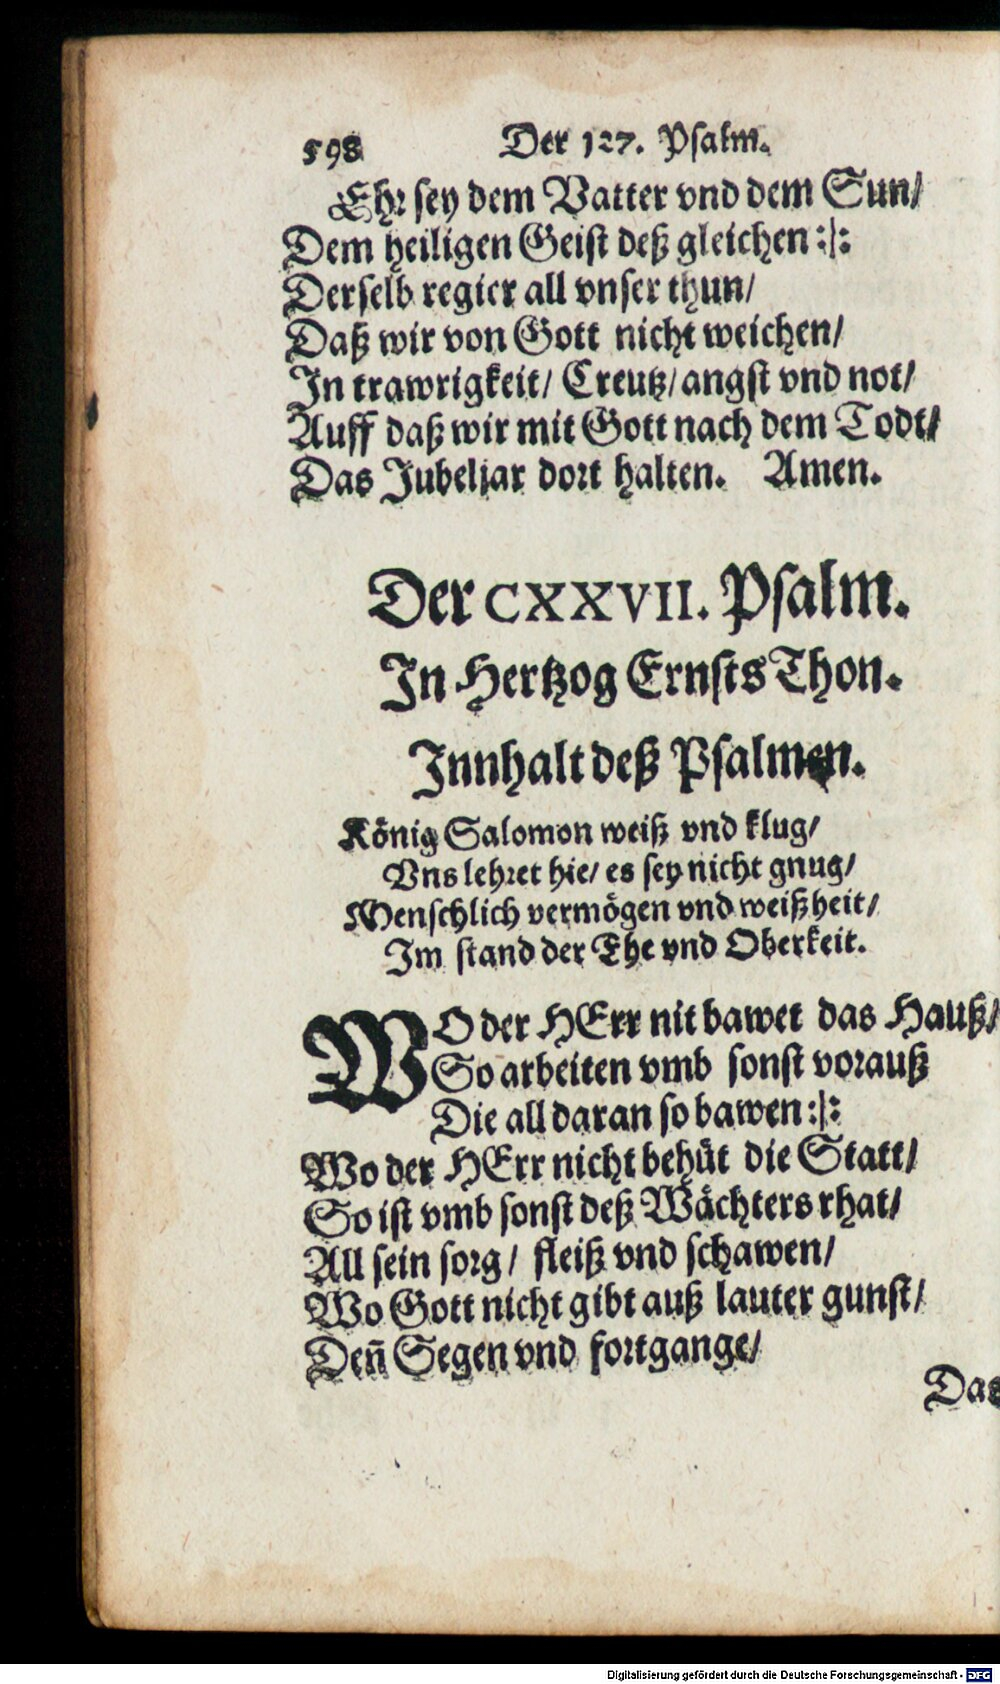 598 Der 127. Psalm.
Ehr sey dem Vatter vnd dem Sun/
Dem heiligen Geist deß gleichen :|:
Derselb regier all vnser thun/
Daß wir von Gott nicht weichen/
In trawrigkeit/ Creutz/ angst vnd not/
Auff daß wir mit Gott nach dem Todt/
Das Jubeljar dort halten. Amen.
Der CXXVII. Psalm.
In Hertzog Ernsts Thon.
Innhalt deß Psalmen.
König Salomon weiß vnd klug/
Vns lehret hie/ es sey nicht gnug/
Menschlich vermögen vnd weißheit/
Im stand der Ehe vnd Oberkeit.
WO der HErr nit bawet das Hauß/
So arbeiten vmb sonst vorauß
Die all daran so bawen :|:
Wo der HErr nicht behüt die Statt/
So ist vmb sonst deß Wächters rhat/
All sein sorg/ fleiß vnd schawen/
Wo Gott nicht gibt auß lauter gunst/
Deñ Segen vnd fortgange/
Das
Digitalisierung gefördert durch die Deutsche Forschungsgemeinschaft - DFG